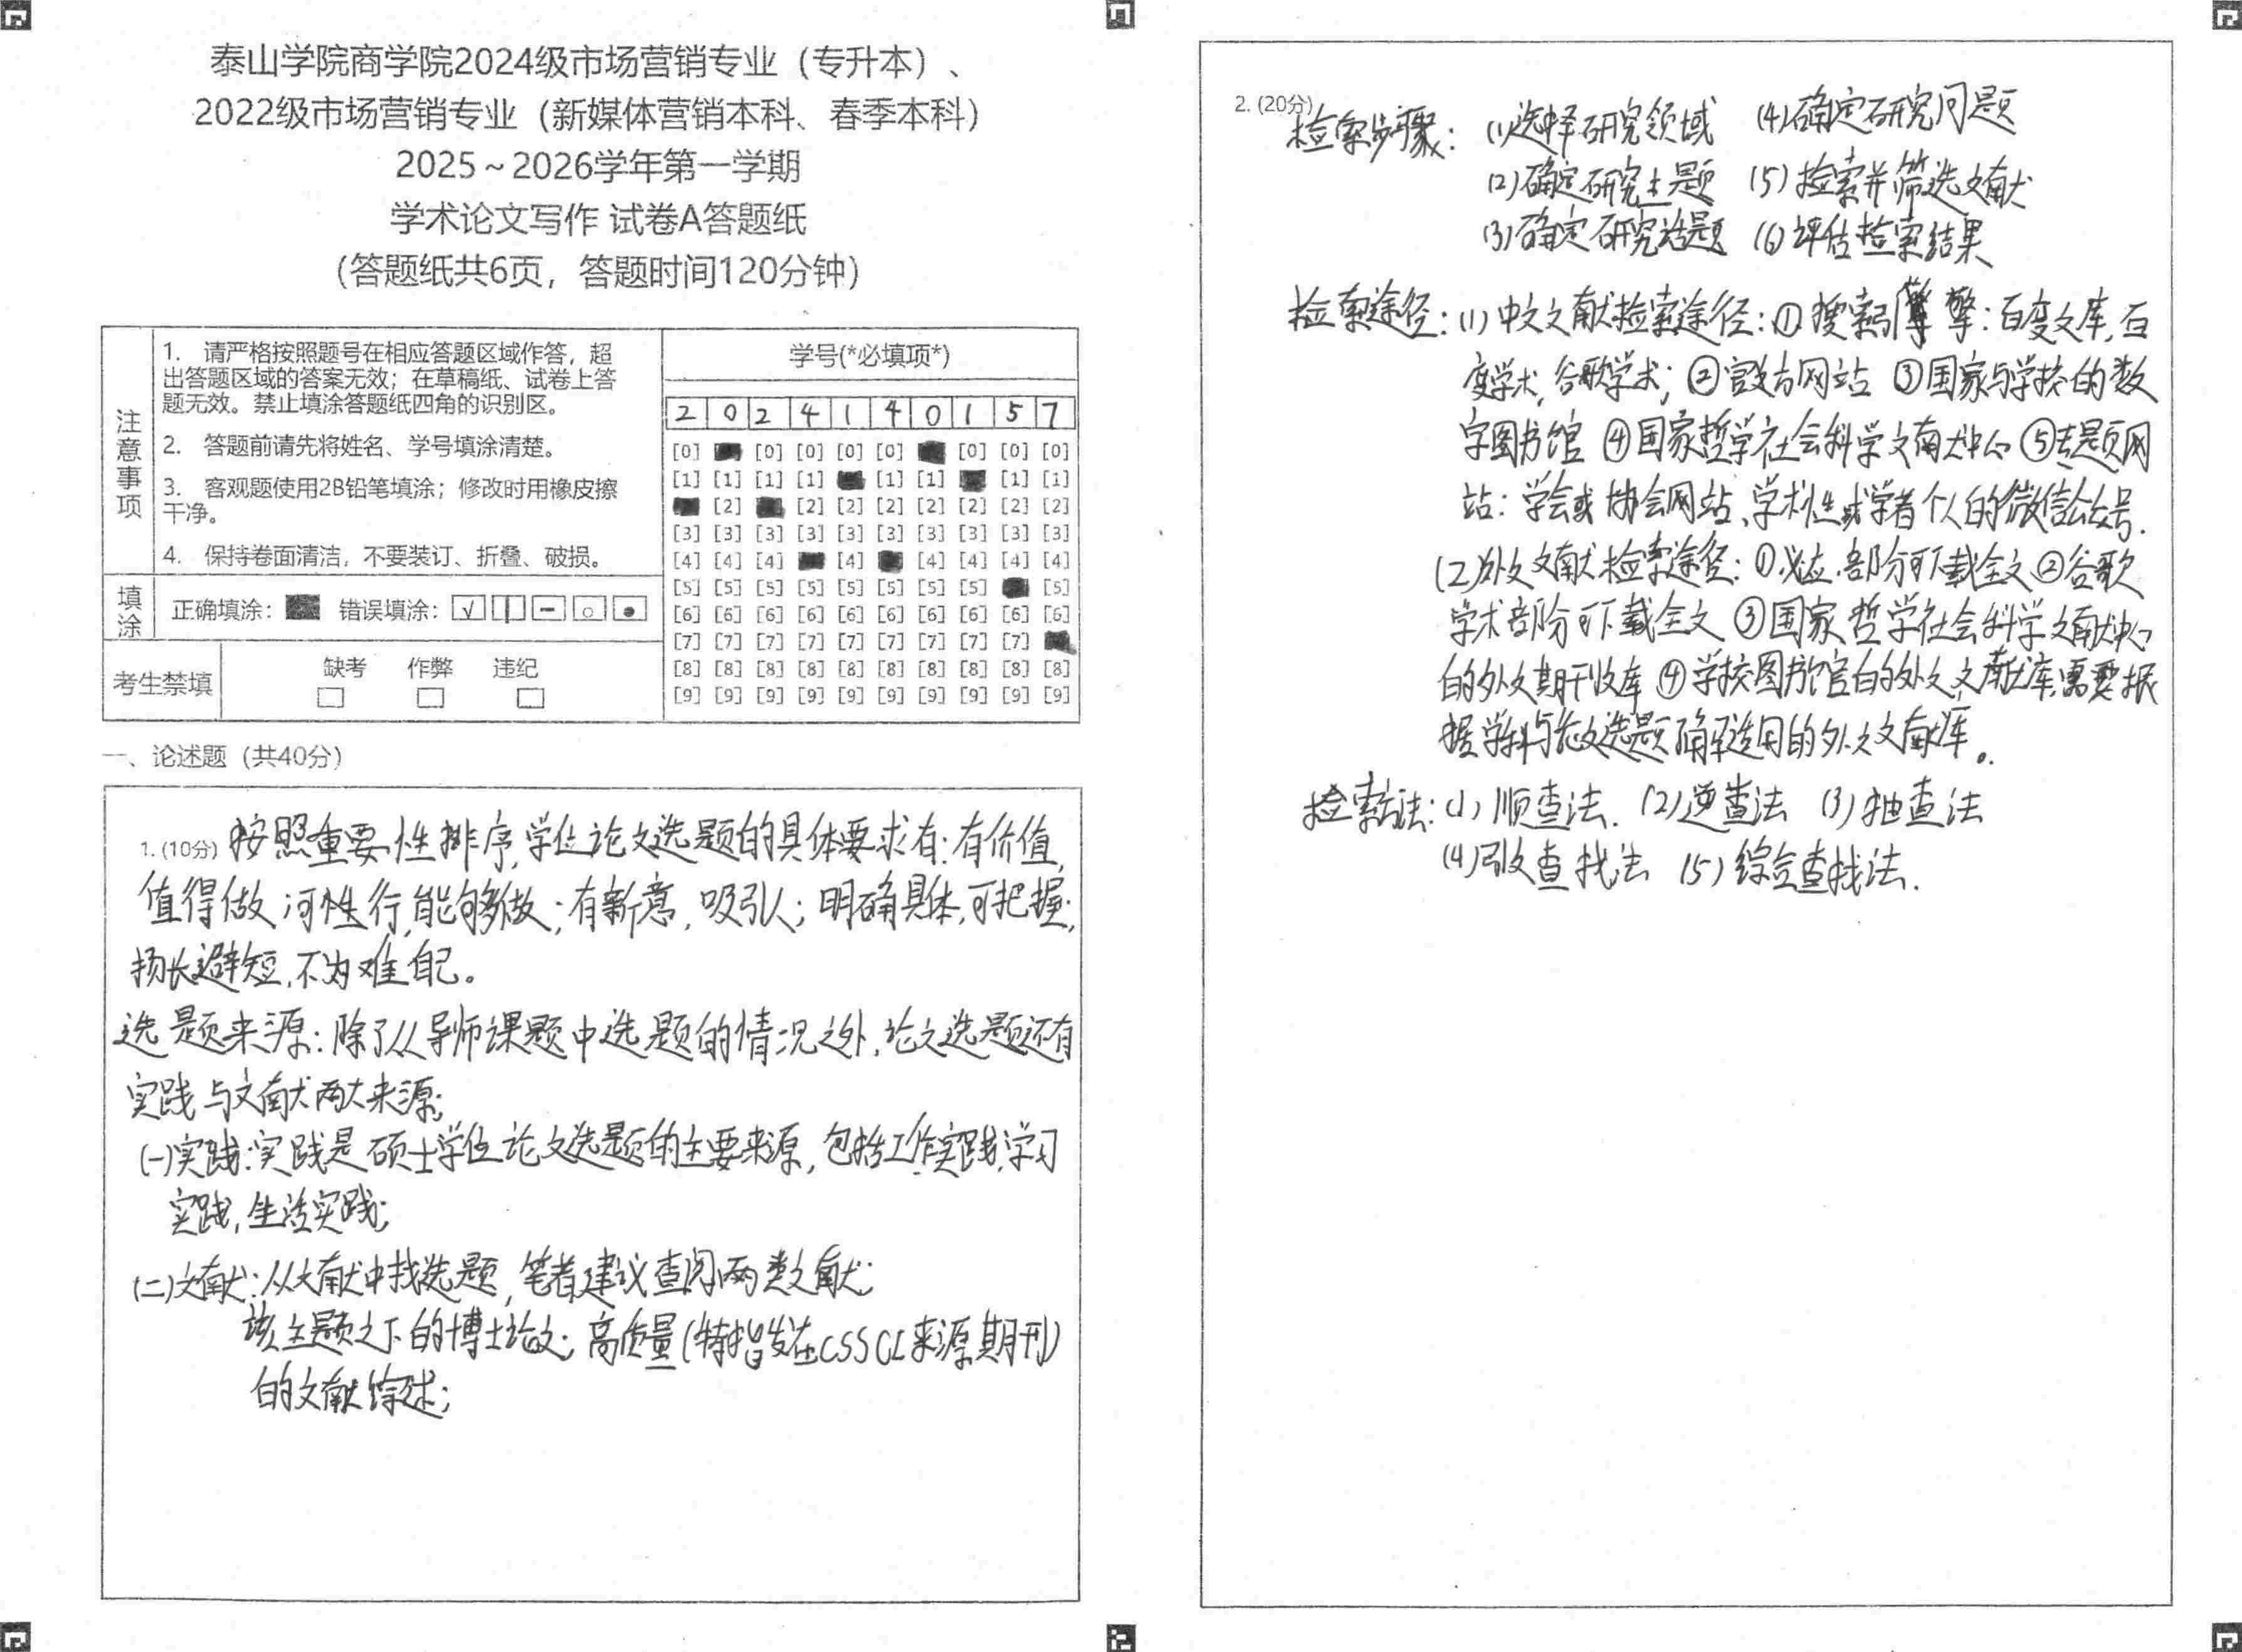 泰山学院商学院2024级市场营销专业（专升本）、
2022级市场营销专业（新媒体营销本科、春季本科）
2025～2026学年第一学期
学术论文写作 试卷A答题纸
（答题纸共6页，答题时间120分钟）
注意事项
1. 请严格按照题号在相应答题区域作答，超
出答题区域的答案无效；在草稿纸、试卷上答
题无效。禁止填涂答题纸四角的识别区。
2. 答题前请先将姓名、学号填涂清楚。
3. 客观题使用2B铅笔填涂；修改时用橡皮擦
干净。
4. 保持卷面清洁，不要装订、折叠、破损。
填涂
正确填涂： 错误填涂：
考生禁填
缺考 作弊 违纪
学号(*必填项*)
2 0 2 4 1 4 0 1 5 7
[0] [0] [0] [0] [0] [0] [0] [0]
[1] [1] [1] [1] [1] [1] [1] [1]
[2] [2] [2] [2] [2] [2] [2] [2]
[3] [3] [3] [3] [3] [3] [3] [3] [3] [3]
[4] [4] [4] [4] [4] [4] [4] [4]
[5] [5] [5] [5] [5] [5] [5] [5] [5]
[6] [6] [6] [6] [6] [6] [6] [6] [6] [6]
[7] [7] [7] [7] [7] [7] [7] [7] [7]
[8] [8] [8] [8] [8] [8] [8] [8] [8] [8]
[9] [9] [9] [9] [9] [9] [9] [9] [9] [9]
一、论述题（共40分）
1. (10分) 按照重要性排序,学位论文选题的具体要求有:有价值,
值得做,可性行,能够做;有新意,吸引人;明确具体,可把握;
扬长避短,不为难自己。
选题来源:除了从导师课题中选题的情况之外,论文选题还有
实践与文献两大来源;
(一)实践:实践是硕士学位论文选题的主要来源,包括工作实践,学习
实践,生活实践;
(二)文献:从文献中找选题,笔者建议查阅两类文献;
该主题之下的博士论文;高质量(特指发在CSSCI来源期刊)
的文献综述;
2. (20分)
检索步骤: (1)选择研究领域 (4)确定研究问题
(2)确定研究主题 (5)检索并筛选文献
(3)确定研究话题 (6)评估检索结果
检索途径:(1)中文文献检索途径:①搜索引擎:百度文库,百
度学术,谷歌学术;②官方网站 ③国家与学校的数
字图书馆 ④国家哲学社会科学文献中心 ⑤专题网
站:学会或协会网站、学术性或学者个人的微信公众号.
(2)外文文献检索途径:①必应,部分可下载全文②谷歌
学术部分可下载全文 ③国家哲学社会科学文献中心
的外文期刊收库 ④学校图书馆的外文文献库,需要根
据学科与论文选题确定适用的外文文献库。
检索方法:(1)顺查法. (2)逆查法 (3)抽查法
(4)引文查找法 (5)综合查找法.